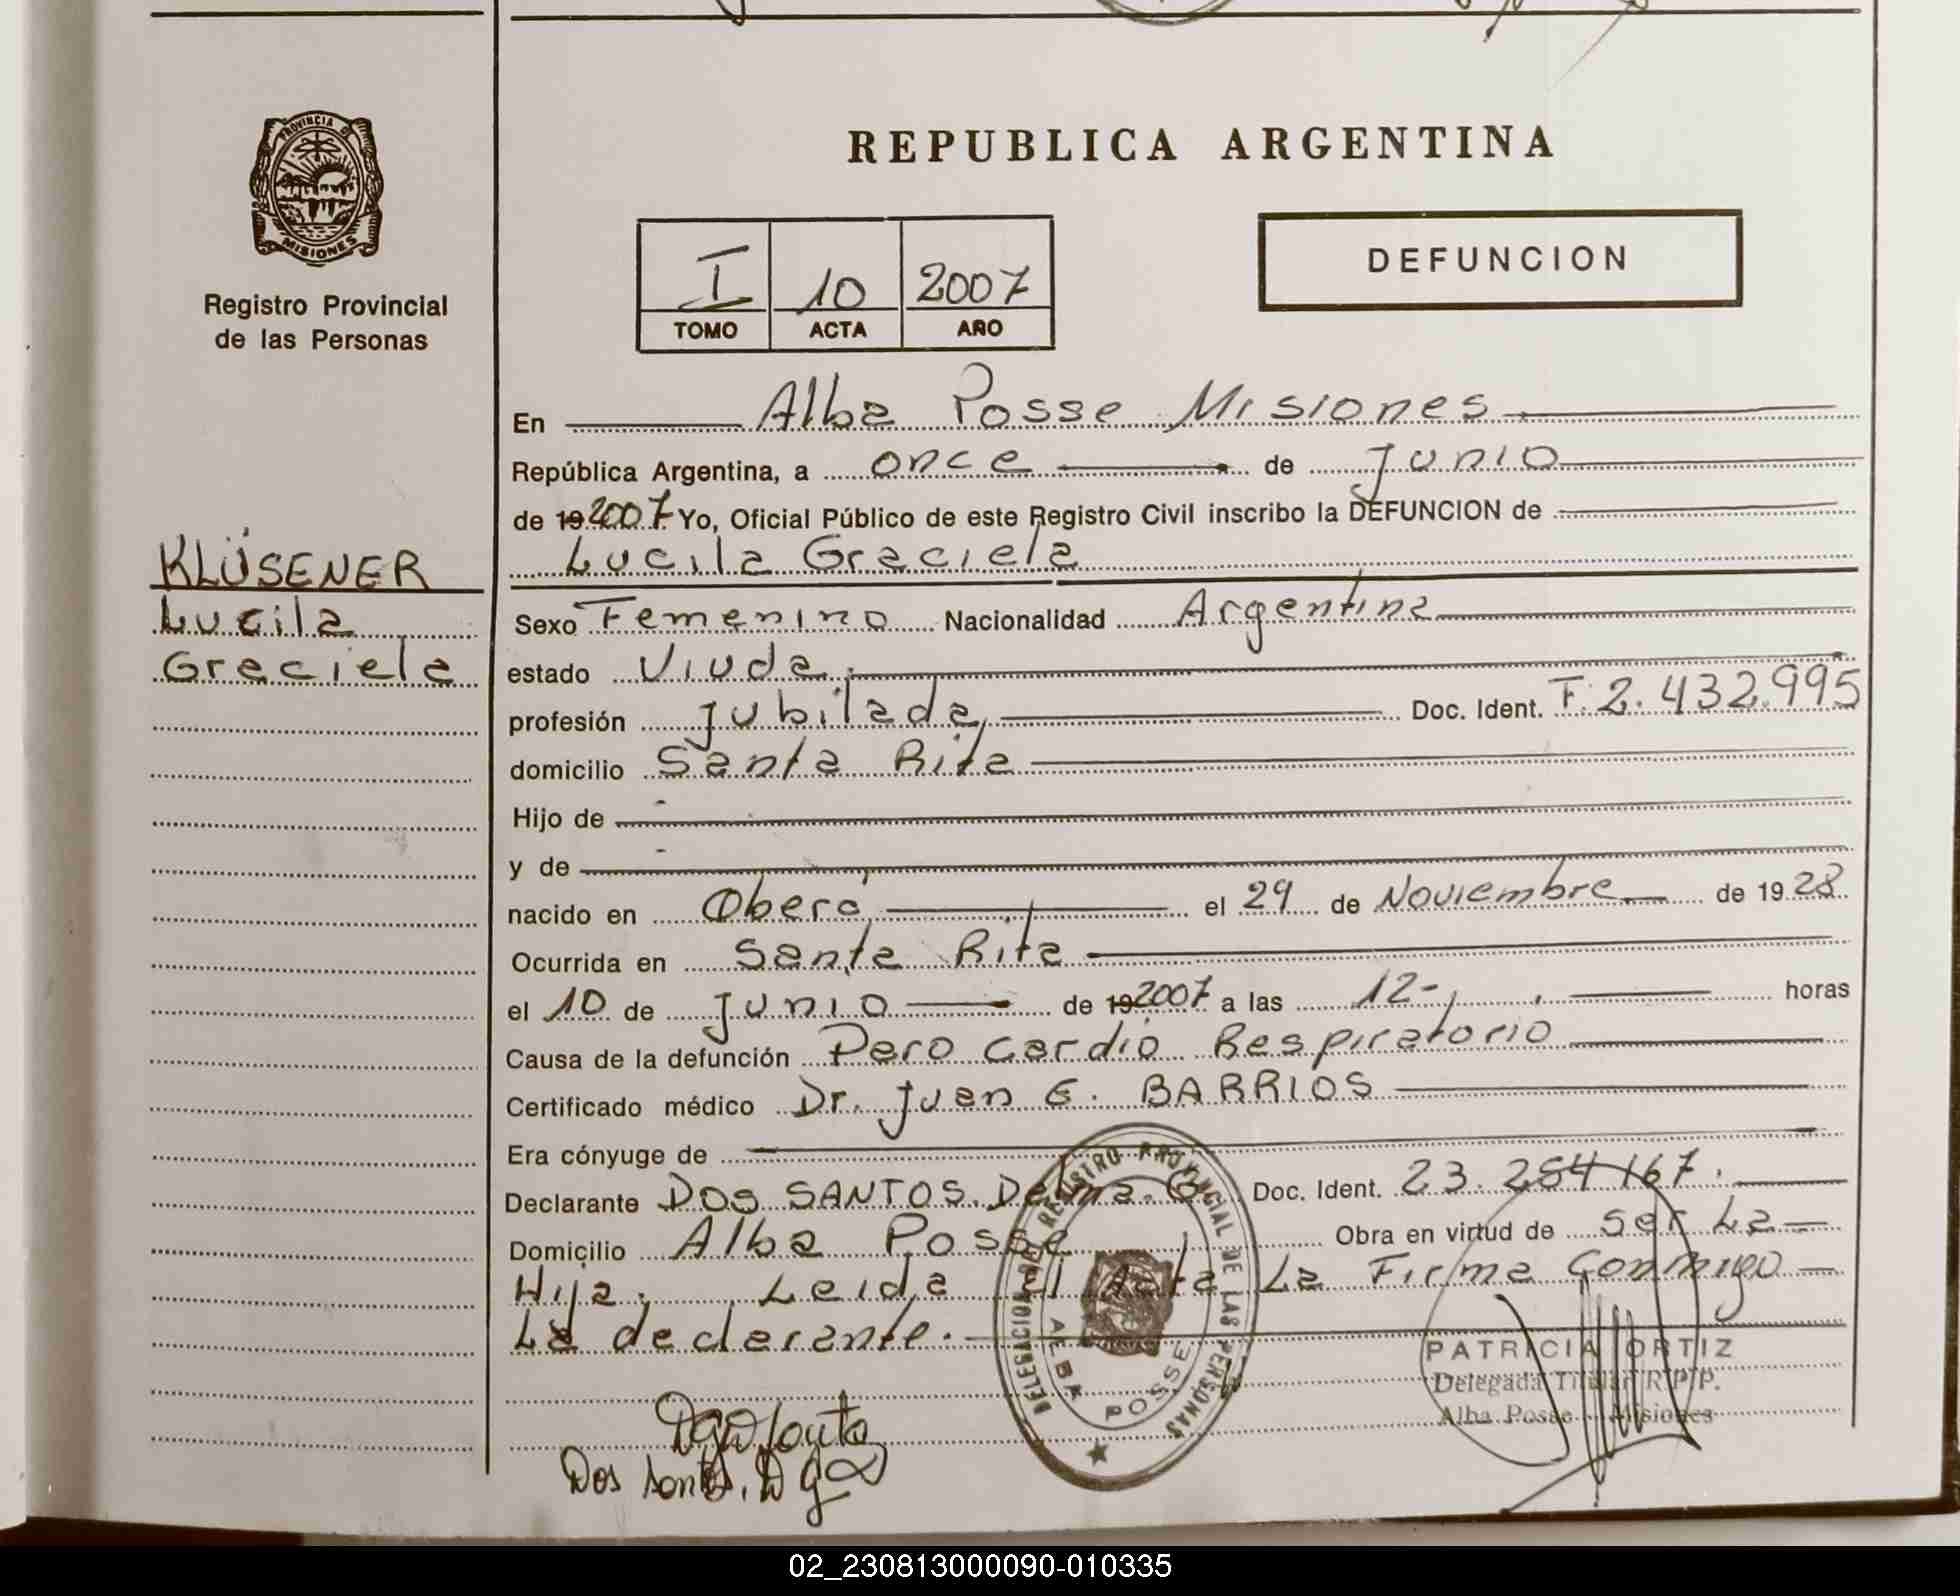 REPUBLICA ARGENTINA
PROVINCIA DE
MISIONES
Registro Provincial
de las Personas
I 10 2007
TOMO ACTA AÑO
DEFUNCION
KLÜSENER
Lucila
Graciela
En Alba Posse Misiones
República Argentina, a once de Junio
de 19 2007 Yo, Oficial Público de este Registro Civil inscribo la DEFUNCION de
Lucila Graciela
Sexo Femenino Nacionalidad Argentina
estado Viuda
profesión Jubilada Doc. Ident. F. 2.432.995
domicilio Santa Rita
Hijo de
y de
nacido en Oberá el 29 de Noviembre de 19 28
Ocurrida en Santa Rita
el 10 de Junio de 19 2007 a las 12- horas
Causa de la defunción Paro Cardio Respiratorio
Certificado médico Dr. Juan E. BARRIOS
Era cónyuge de
Declarante DOS SANTOS. Delma. G. Doc. Ident. 23.254 167.
Domicilio Alba Posse Obra en virtud de ser La
Hija. Leida el Acta La Firma Conmigo
La declarante.
DELEGACION DE REGISTRO PROVINCIAL DE LAS PERSONAS
ALBA POSSE
PATRICIA ORTIZ
Delegada Titular R.P.P.
Alba Posse - Misiones
Dos Santos. D G
02_230813000090-010335